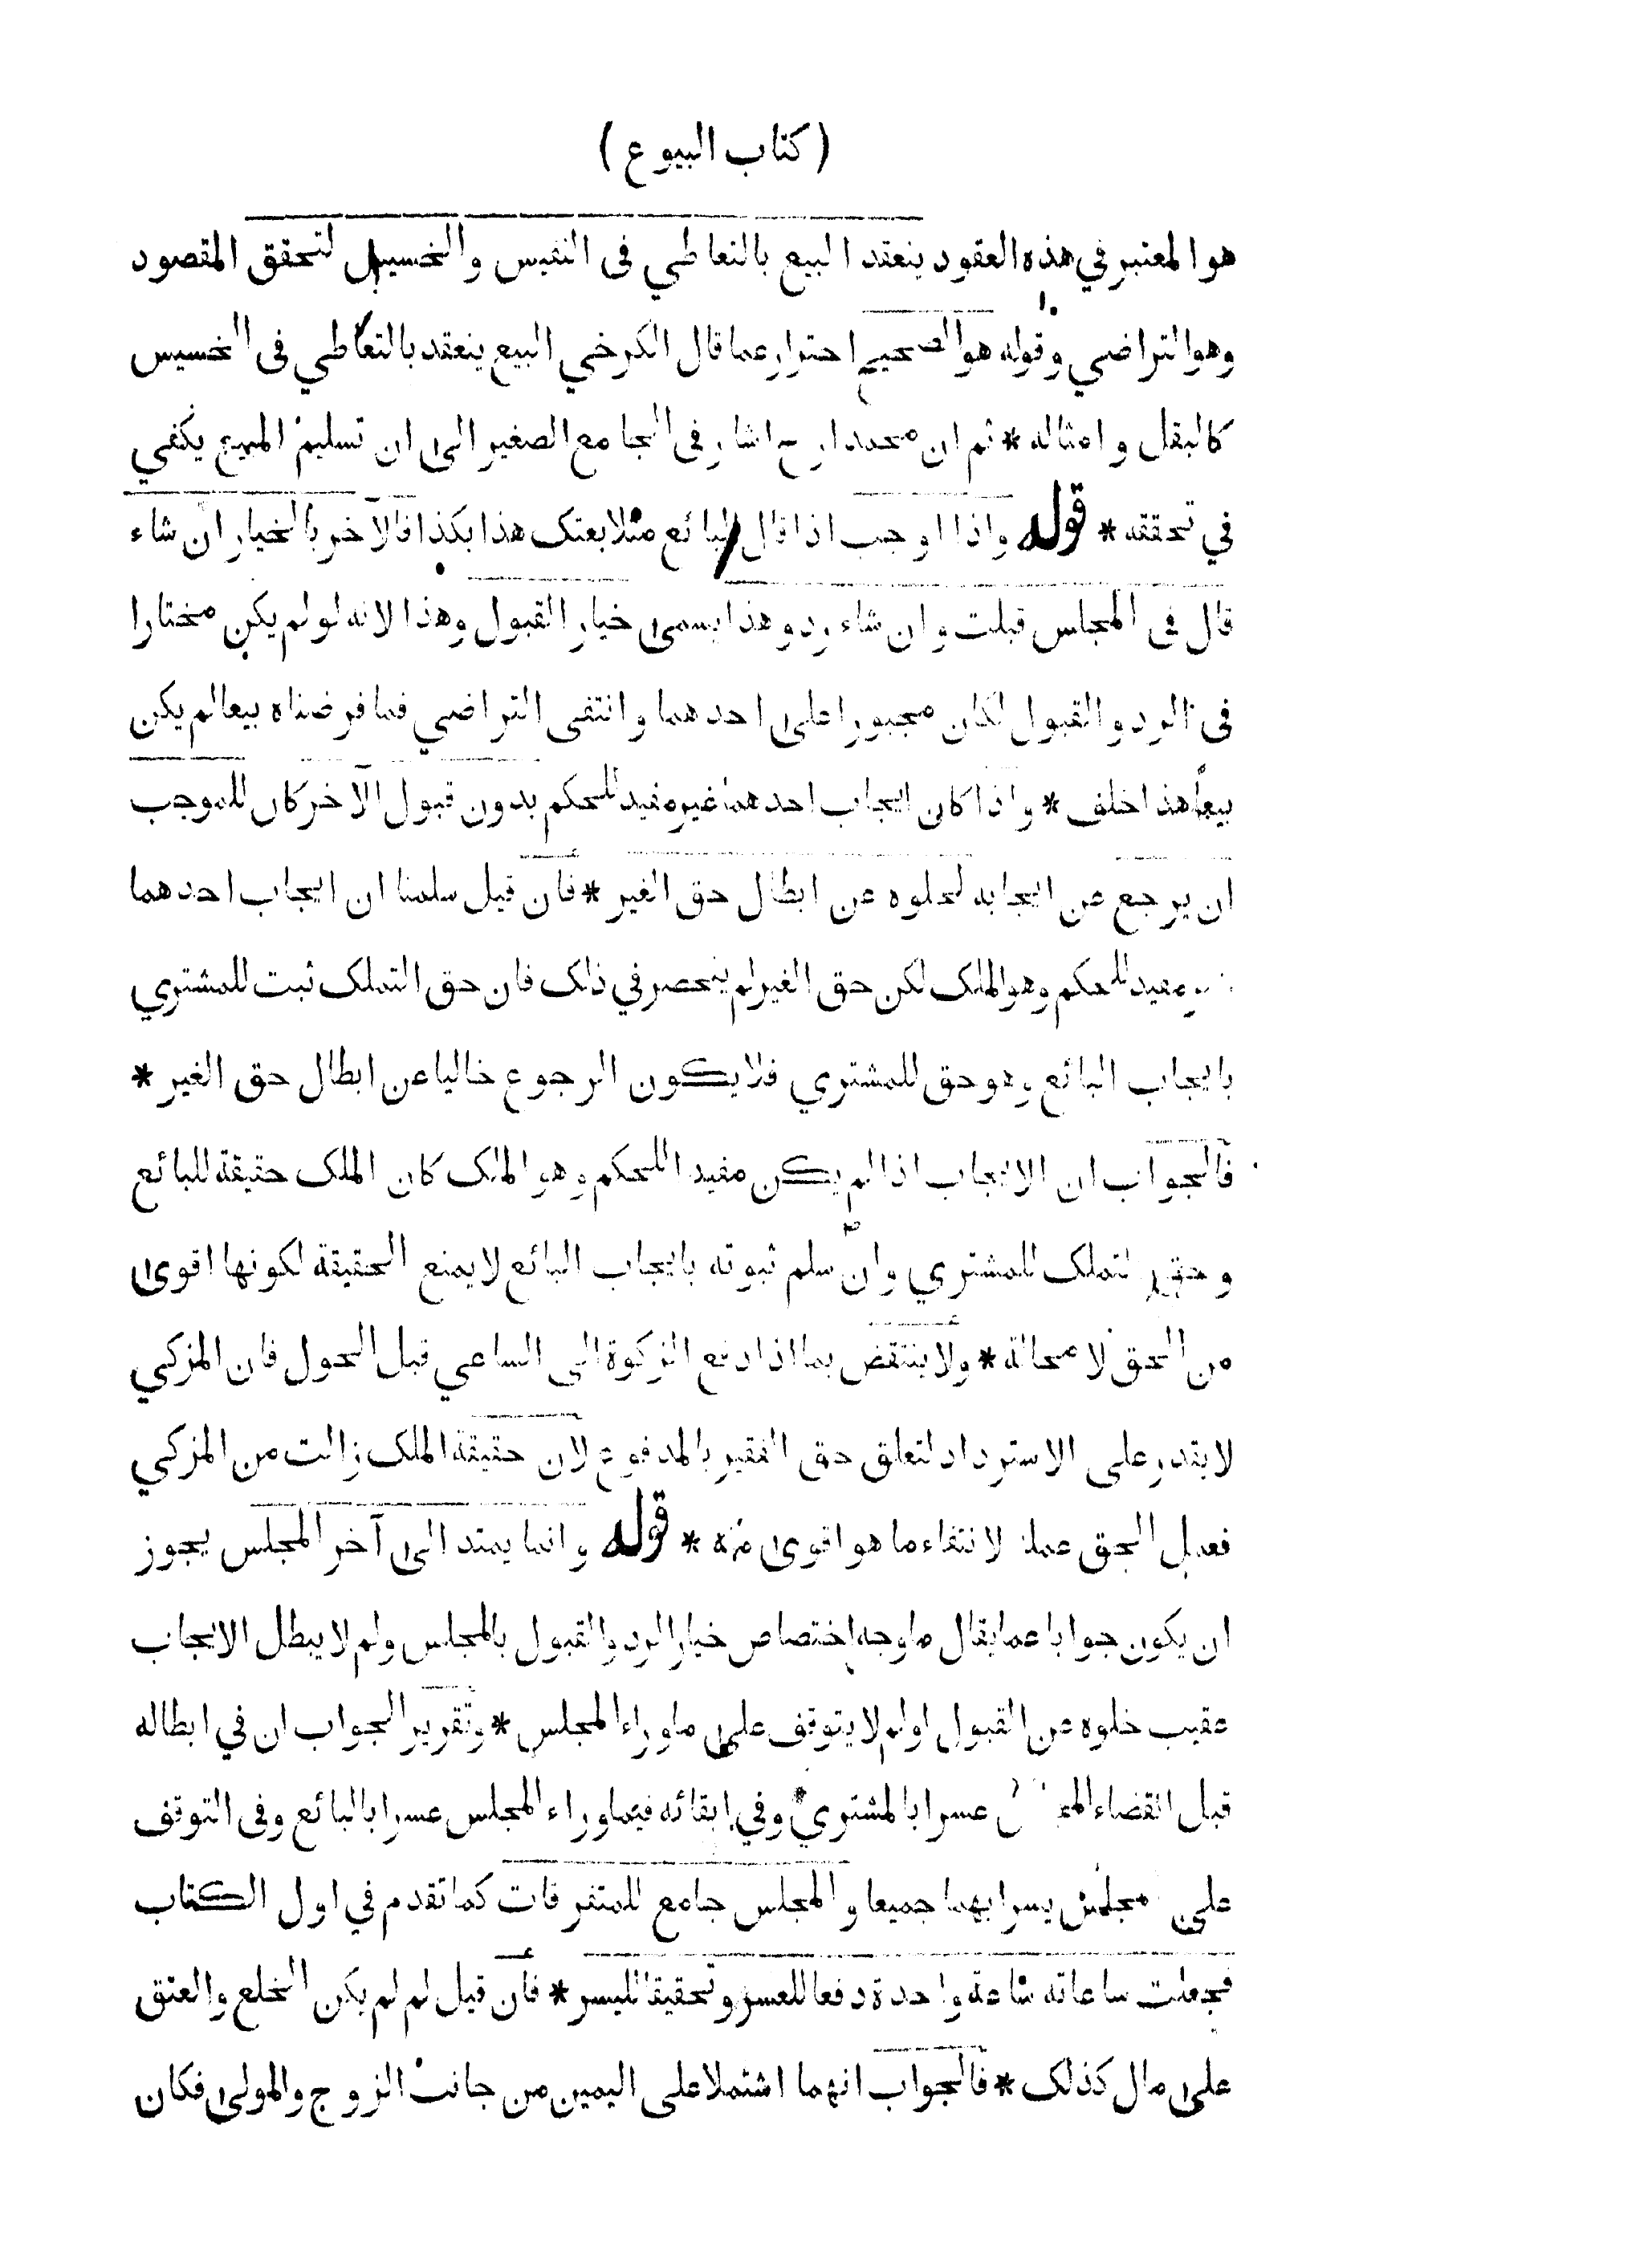 ( كتاب البيوع )
هو المعتبر في هذه العقود ينعقد البيع بالتعاطي فى النفيس والخسيس لتحقق المقصود
وهو التراضي وقوله هو الصحيح احترازعما قال الكرخي البيع ينعقد بالتعاطي فى الخسيس
كالبقل وامثاله * ثم ان محمدا رح اشار فى الجامع الصغير الى ان تسليم المبيع يكفي
في تحققه * قوله واذا اوجب اذا قال البائع مثلا بعتک هذا بكذا فالآخر بالخيار ان شاء
قال فى المجلس قبلت وان شاء رد وهذا يسمى خيار القبول وهذا لانه لو لم يكن مختارا
فى الرد والقبول لكان مجبورا على احدهما وانتفى التراضي فما فرضناه بيعا لم يكن
بيعا هذا خلف * واذا كان ايجاب احدهما غير مفيد للحكم بدون قبول الآخر كان للموجب
ان يرجع عن ايجابه لخلوه عن ابطال حق الغير * فان قيل سلمنا ان ايجاب احدهما
مفيد للحكم وهو الملک لكن حق الغير لم ينحصر في ذلک فان حق التملک ثبت للمشتري
بايجاب البائع وهو حق للمشتري فلا يكون الرجوع خاليا عن ابطال حق الغير *
فالجواب ان الايجاب اذا لم يكن مفيدا للحكم وهو الملک كان الملک حقيقة للبائع
وحق التملک للمشتري وان سلم ثبوته بايجاب البائع لا يمنع الحقيقة لكونها اقوى
من الحق لا محالة * ولا ينتقض بما اذا دفع الزكوة الى الساعي قبل الحول فان المزكي
لا يقدر على الاسترداد لتعلق حق الفقير بالمدفوع لان حقيقة الملک زالت من المزكي
فعمل الحق عمله لانتفاء ما هو اقوى منه * قوله وانما يمتد الى آخر المجلس يجوز
ان يكون جوابا عما يقال ما وجه اختصاص خيار الرد والقبول بالمجلس ولم لا يبطل الايجاب
عقيب خلوه عن القبول او لم لا يتوقف على ما وراء المجلس * وتقرير الجواب ان في ابطاله
قبل انقضاء المجلس عسرا بالمشتري وفي ابقائه فيما وراء المجلس عسرا بالبائع وفى التوقف
على مجلس يسرا بهما جميعا والمجلس جامع للمتفرقات كما تقدم في اول الكتاب
فجعلت ساعاته ساعة واحدة دفعا للعسر وتحقيقا لليسر * فان قيل لم لم يكن الخلع والعتق
على مال كذلک * فالجواب انهما اشتملا على اليمين من جانب الزوج والمولى فكان